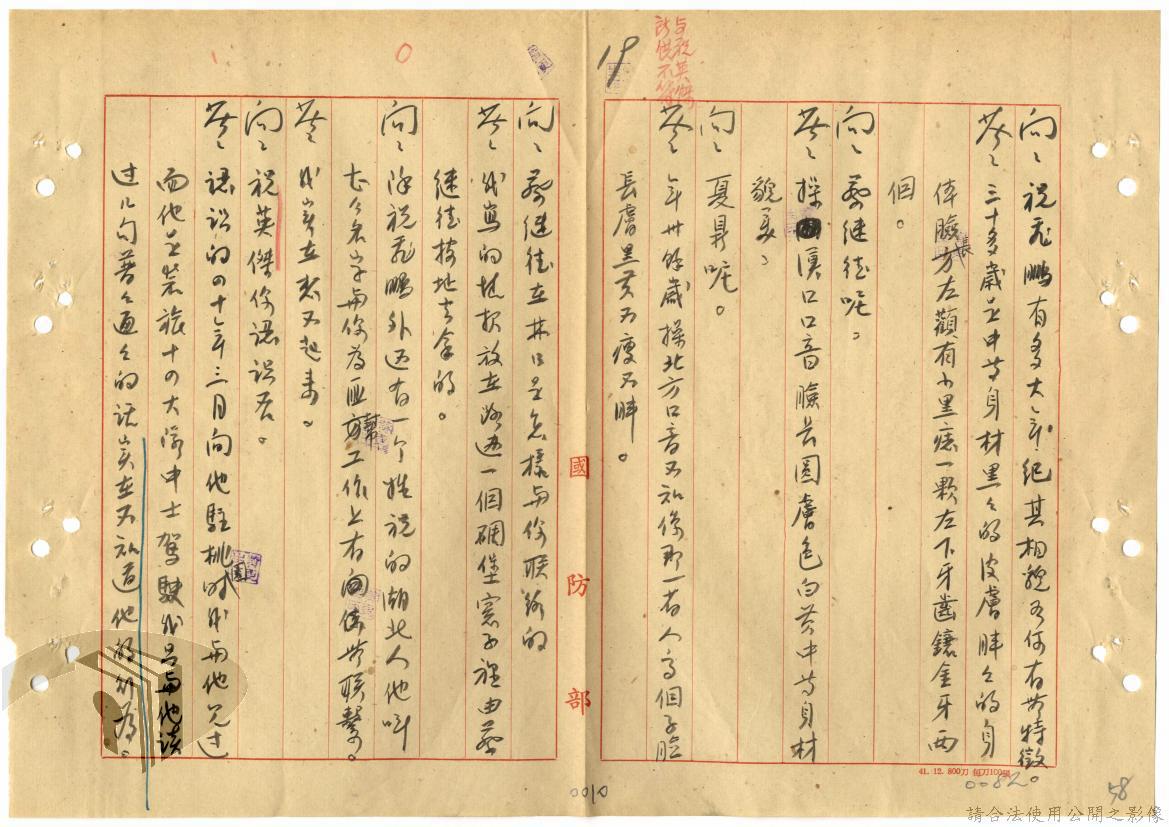 問：祝飛鵬有多大年紀其相貌為何有無特徵。
答：三十多歲是中等身材黑黑的皮膚胖胖的身
体臉方長左顴有小黑痣一顆左下牙齒鑲金牙兩
個。
問：蔡繼徒呢。
答：操漢口口音臉長圓膚色白黃中等身材
貌美。
問：夏鼎呢。
答：年卅餘歲操北方口音不知係那一省人高個子臉
長膚黑黃不瘦不胖。
19
問：蔡继徒在林口是怎樣與你联絡的
答：我寫的情报放在路边一個碉堡窓子裡由蔡
继徒按地去拿的。
問：除祝飛鵬外还有一个姓祝的湖北人他叫
什么名字與你為匪幫工作上有無联繫。
答：我实在想不起来。
問：祝英傑你認識否。
答：認識的四十年三月間他駐桃園时我與他见过
面他是裝旅十四大隊中士駕駛我只與他談
过几句普普通通的话实在不知道他的行为。
國防部
41.12. 800刀 每刀100張
0082
58
0010
請合法使用公開之影像